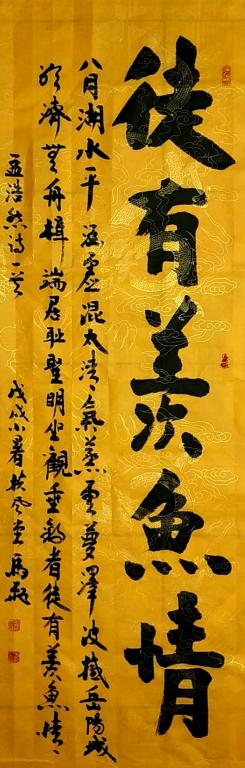 徒有羡魚情
八月湖水平涵虚混太清氣蒸雲夢澤波撼岳陽城
欲濟無舟楫端居耻聖明坐觀垂釣者徒有羡魚情
孟浩然詩一首
戊戌小暑扶風堂馬